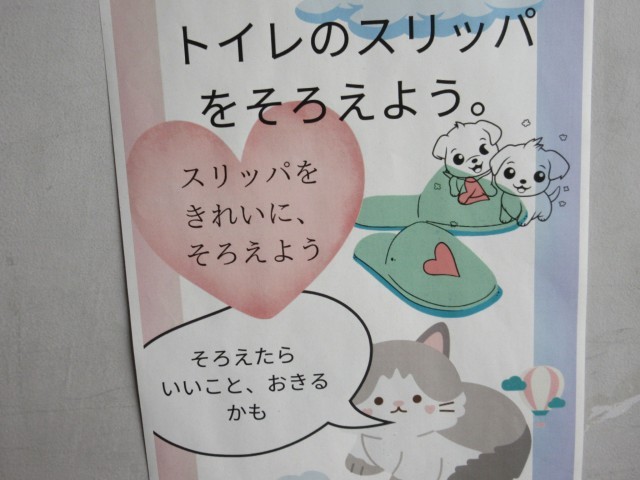 トイレのスリッパ
をそろえよう。
スリッパを
きれいに、
そろえよう
そろえたら
いいこと、おきる
かも